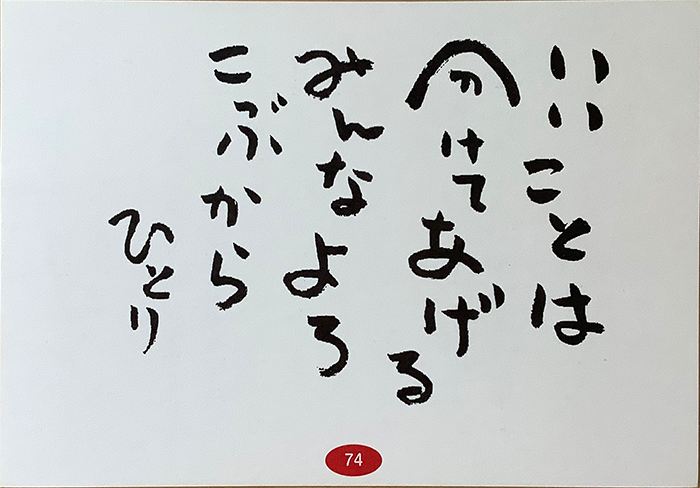 いいことは
分けてあげる
みんなよろ
こぶから
ひとり
74